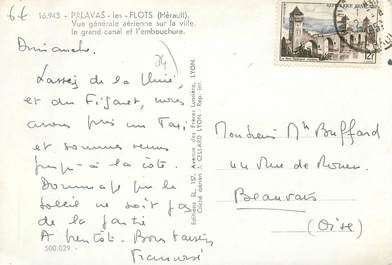 6€
16.943 - PALAVAS-les-FLOTS (Hérault).
Vue générale aérienne sur la ville,
le grand canal et l'embouchure.
34
Dimanche.
Lassés de la
et du Figaret, nous
avons pris un Taxi
et sommes venus
jusqu'à la côte.
Dommage que le
soleil ne soit pas
de la partie
A bientôt. Bons baisers
500.029 -
Editions SL, 157, Avenue des Frères Lumière, LYON
Cliché aérien J. CELLARD LYON - Rep. int.
12F
Monsieur Buffard
44 Rue de Rouen
Beauvais
(Oise)